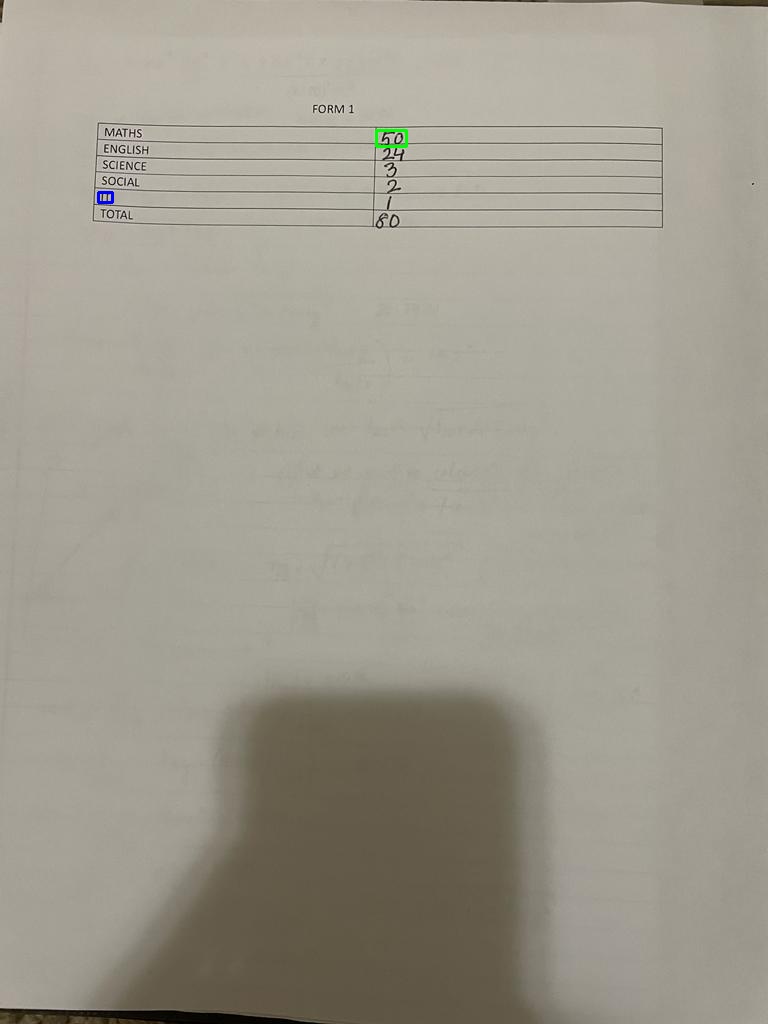 FORM 1
MATHS 50
ENGLISH 24
SCIENCE 3
SOCIAL 2
1
TOTAL 80